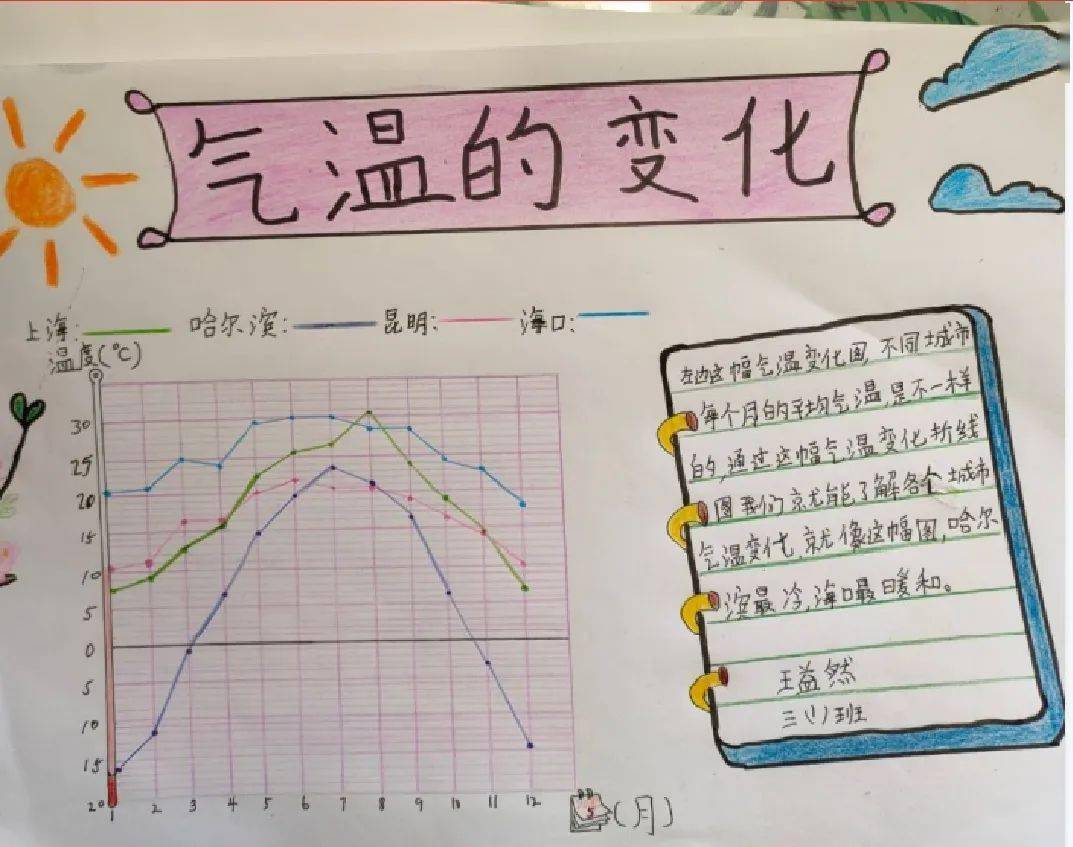 气温的变化
上海: 哈尔滨: 昆明: 海口:
温度(℃)
30
25
20
15
10
5
0
5
10
15
20
1 2 3 4 5 6 7 8 9 10 11 12
5
(月)
左边这幅气温变化图,不同城市
每个月的平均气温是不一样
的,通过这幅气温变化折线
图我们就能了解各个城市
气温变化,就像这幅图,哈尔
滨最冷,海口最暖和。
王益然
三(1)班